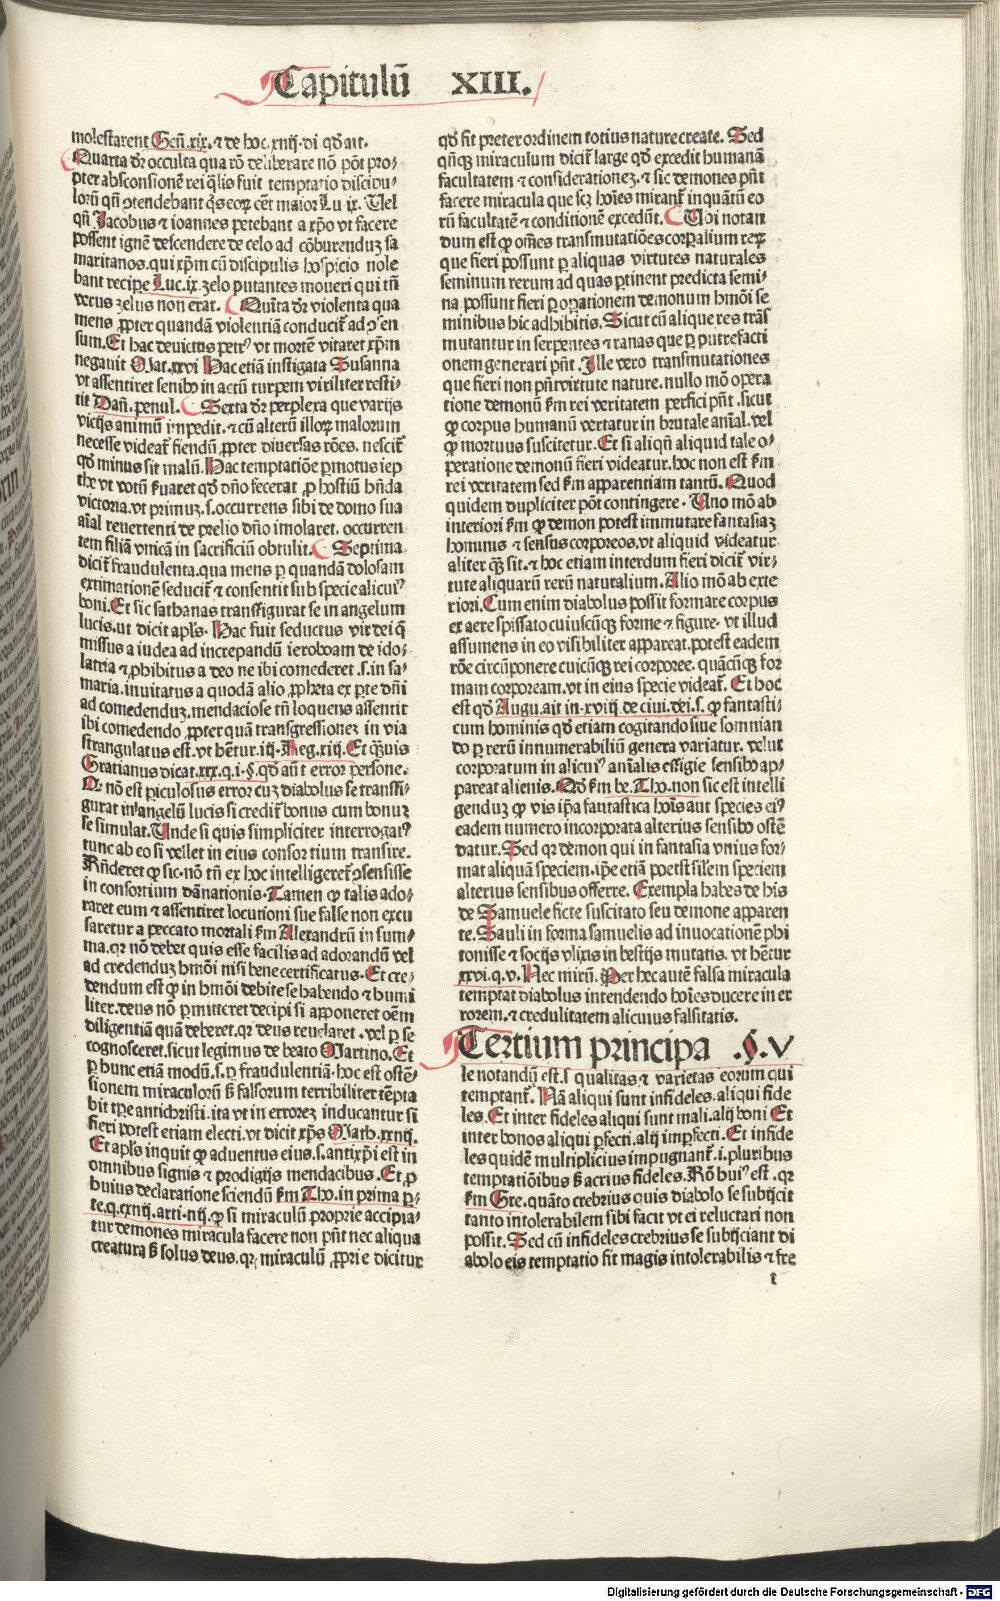 Capitulū XIII.
molestarent Gen̄.xix. ⁊ de hoc.xxiij.di qd̄ ait.
Quarta dr̄ occulta qua rō deliberare nō pōt pro-
pter absconsionē rei q̄lis fuit temptatio discipu-
lorū qn̄ ꝯtendebant q̄s eoꝝ cēt maior Lu ix. Uel
qn̄ Jacobus ⁊ ioannes petebant a xp̄o vt facere
possent ignē descendere de celo ad cōburenduz sa
maritanos.qui xp̄m cū discipulis hospicio nole
bant recipe Luc.ix.zelo putantes moueri qui tn̄
verus zelus non erat. Quīta dr̄ violenta qua
mens ꝓpter quandā violentiā conducit̄ ad ꝯsen
sum.Et hac deuictus petrꝰ vt mortē vitaret xp̄m
negauit Mat.xxvi Hac etiā instigata Susanna
vt assentiret senibꝰ in actū turpem viriliter resti-
tit Dan̄.penul. Sexta dr̄ perplexa que varijs
vicijs animū impedit.⁊ cū alterū illoꝝ malorum
necesse videat̄ fiendū ꝓpter diuersas rōes. nescit̄
qd̄ minus sit malū. Hac temptatiōe ꝑmotus iep
the vt votū ẜuaret qd̄ dn̄o fecerat ꝓ hostiū hn̄da
victoria.vt primuz.s.occurrens sibi de domo sua
aīal reuertenti de prelio dn̄o imolaret. occurren
tem filiā vnicā in sacrificiū obtulit. Septima
dicit̄ fraudulenta.qua mens ꝑ quandā dolosam
extimationē seducit̄ ⁊ consentit sub specie alicuiꝰ
boni.Et sic sathanas transfigurat se in angelum
lucis.ut dicit apl̄s. Hac fuit seductus vir dei q̄
missus a iudea ad increpandū ieroboam de ido-
latria ⁊ ꝓhibitus a deo ne ibi comederet .s.in sa-
maria.inuitatus a quodā alio ꝓpheta ex ꝑte dn̄i
ad comedenduz.mendaciose tn̄ loquens assentit
ibi comedendo ꝓpter quā transgressionez in via
strangulatus est.vt hētur.iij.Reg.xiij.Et q̄uis
Gratianus dicat.xxx.q.i.§.qd̄ aūt error persone.
Qꝛ nō est ꝑiculosus error cuz diabolus se transfi-
gurat in angelū lucis si credit̄ bonus cum bonuz
se simulat.Unde si quis simpliciter interrogarꝰ
tunc ab eo si vellet in eius consortium transire.
Rn̄deret ꝙ sic.nō tn̄ ex hoc intelligeret̄ ꝯsensisse
in consortium dānationis.Tamen ꝙ talis ado-
raret eum ⁊ assentiret locutioni sue false non excu
saretur a peccato mortali ẜm Alexandrū in sum-
ma.qꝛ nō debet quis esse facilis ad adorandū vel
ad credenduz hmōi nisi bene certificatus.Et cre-
dendum est ꝙ in hmōi debite se habendo ⁊ humi
liter.deus nō ꝑmitteret decipi si apponeret oēm
diligentiā quā deberet.qꝛ deus reuelaret .vel ꝑ se
cognosceret.sicut legimus de beato Martino.Et
ꝑ hunc etiā modū.s.ꝑ fraudulentiā.hoc est ostē-
sionem miraculorū ẜ falsorum terribiliter tēpta
bit tꝑe antichristi.ita vt in errorez inducantur si
fieri potest etiam electi.vt dicit xp̄s Math.xxiiij.
Et apl̄s inquit ꝙ aduentus eius.s.antixp̄i est in
omnibus signis ⁊ prodigijs mendacibus.Et ꝓ
huius declaratione sciendū ẜm Tho.in prima ꝑ-
te.q.cxiiij.arti.iiij.ꝙ si miraculū proprie accipia-
tur demones miracula facere non pn̄t nec aliqua
creatura ẜ solus deus.qꝛ miraculū ꝓprie dicitur
qd̄ fit preter ordinem totius nature create. Sed
qn̄qꝫ miraculum dicit̄ large qd̄ excedit humanā
facultatem ⁊ considerationez.⁊ sic demones pn̄t
facere miracula que scꝫ hoīes mirant̄ inquātū eo
rū facultatē ⁊ conditionē excedūt. Ubi notan
dum est ꝙ om̄es transmutatiōes corpalium reꝝ
que fieri possunt ꝑ aliquas virtutes naturales
seminum rerum ad quas ꝑtinent predicta semi-
na possunt fieri ꝑ oꝑationem demonum hmōi se
minibus hic adhibitis.Sicut cū alique res trās
mutantur in serpentes ⁊ ranas que ꝑ putrefacti
onem generari pn̄t.Ille vero transmutationes
que fieri non pn̄t virtute nature.nullo mō opera
tione demonū ẜm rei veritatem perfici pn̄t .sicut
ꝙ corpus humanū vertatur in brutale aīal.vel
ꝙ mortuus suscitetur.Et si aliqn̄ aliquid tale o-
peratione demonū fieri videatur.hoc non est ẜm
rei veritatem sed ẜm apparentiam tantū.Quod
quidem dupliciter pōt contingere. Uno mō ab
interiori ẜm ꝙ demon potest immutare fantasiaz
hominis ⁊ sensus corporeos.vt aliquid videatur
aliter q̄ꝫ sit.⁊ hoc etiam interdum fieri dicit̄ vir-
tute aliquarū rerū naturalium.Alio mō ab exte
riori.Cum enim diabolus possit formare corpus
ex aere spissato cuiuscūqꝫ forme ⁊ figure. vt illud
assumens in eo visibiliter appareat.potest eadem
rōe circūponere cuicūqꝫ rei corporee.quācūqꝫ for
mam corpoream.vt in eius specie videat̄. Et hoc
est qd̄ Augu.ait in.xviij.de ciui.dei.s.ꝙ fantasti-
cum hominis qd̄ etiam cogitando siue somnian
do ꝑ rerū innumerabiliū genera variatur. velut
corporatum in alicuiꝰ aīalis effigie sensibꝰ ap-
pareat alienis. Qd̄ ẜm be.Tho.non sic est intelli
genduz ꝙ vis ip̄a fantastica hoīs aut species eiꝰ
eadem numero incorporata alterius sensibꝰ ostē
datur.Sed qꝛ demon qui in fantasia vnius for-
mat aliquā speciem.ip̄e etiā potest sil̄em speciem
alterius sensibus offerre. Exempla habes de his
de Samuele ficte suscitato seu demone apparen
te.Sauli in forma samuelis ad inuocationē phi
tonisse ⁊ socijs vlixis in bestijs mutatis. vt hētur
xxvi.q.v. Nec mirū. Per hec autē falsa miracula
temptat diabolus intendendo hoīes ducere in er
rorem.⁊ credulitatem alicuius falsitatis.
Tertium principa .§.V
le notandū est.s qualitas ⁊ varietas eorum qui
temptant̄. Nā aliqui sunt infideles.aliqui fide
les.Et inter fideles aliqui sunt mali.alij boni Et
inter bonos aliqui ꝑfecti.alij imꝑfecti.Et infide
les quidē multiplicius impugnant̄.i.pluribus
temptatiōibus ẜ acrius fideles.Rō huiꝰ est.qꝛ
ẜm Gre.quāto crebrius quis diabolo se subijcit
tanto intolerabilem sibi facit vt ei reluctari non
possit.Sed cū infideles crebrius se subijciant di
abolo eis temptatio fit magis intolerabilis ⁊ fre
t
Digitalisierung gefördert durch die Deutsche Forschungsgemeinschaft - DFG